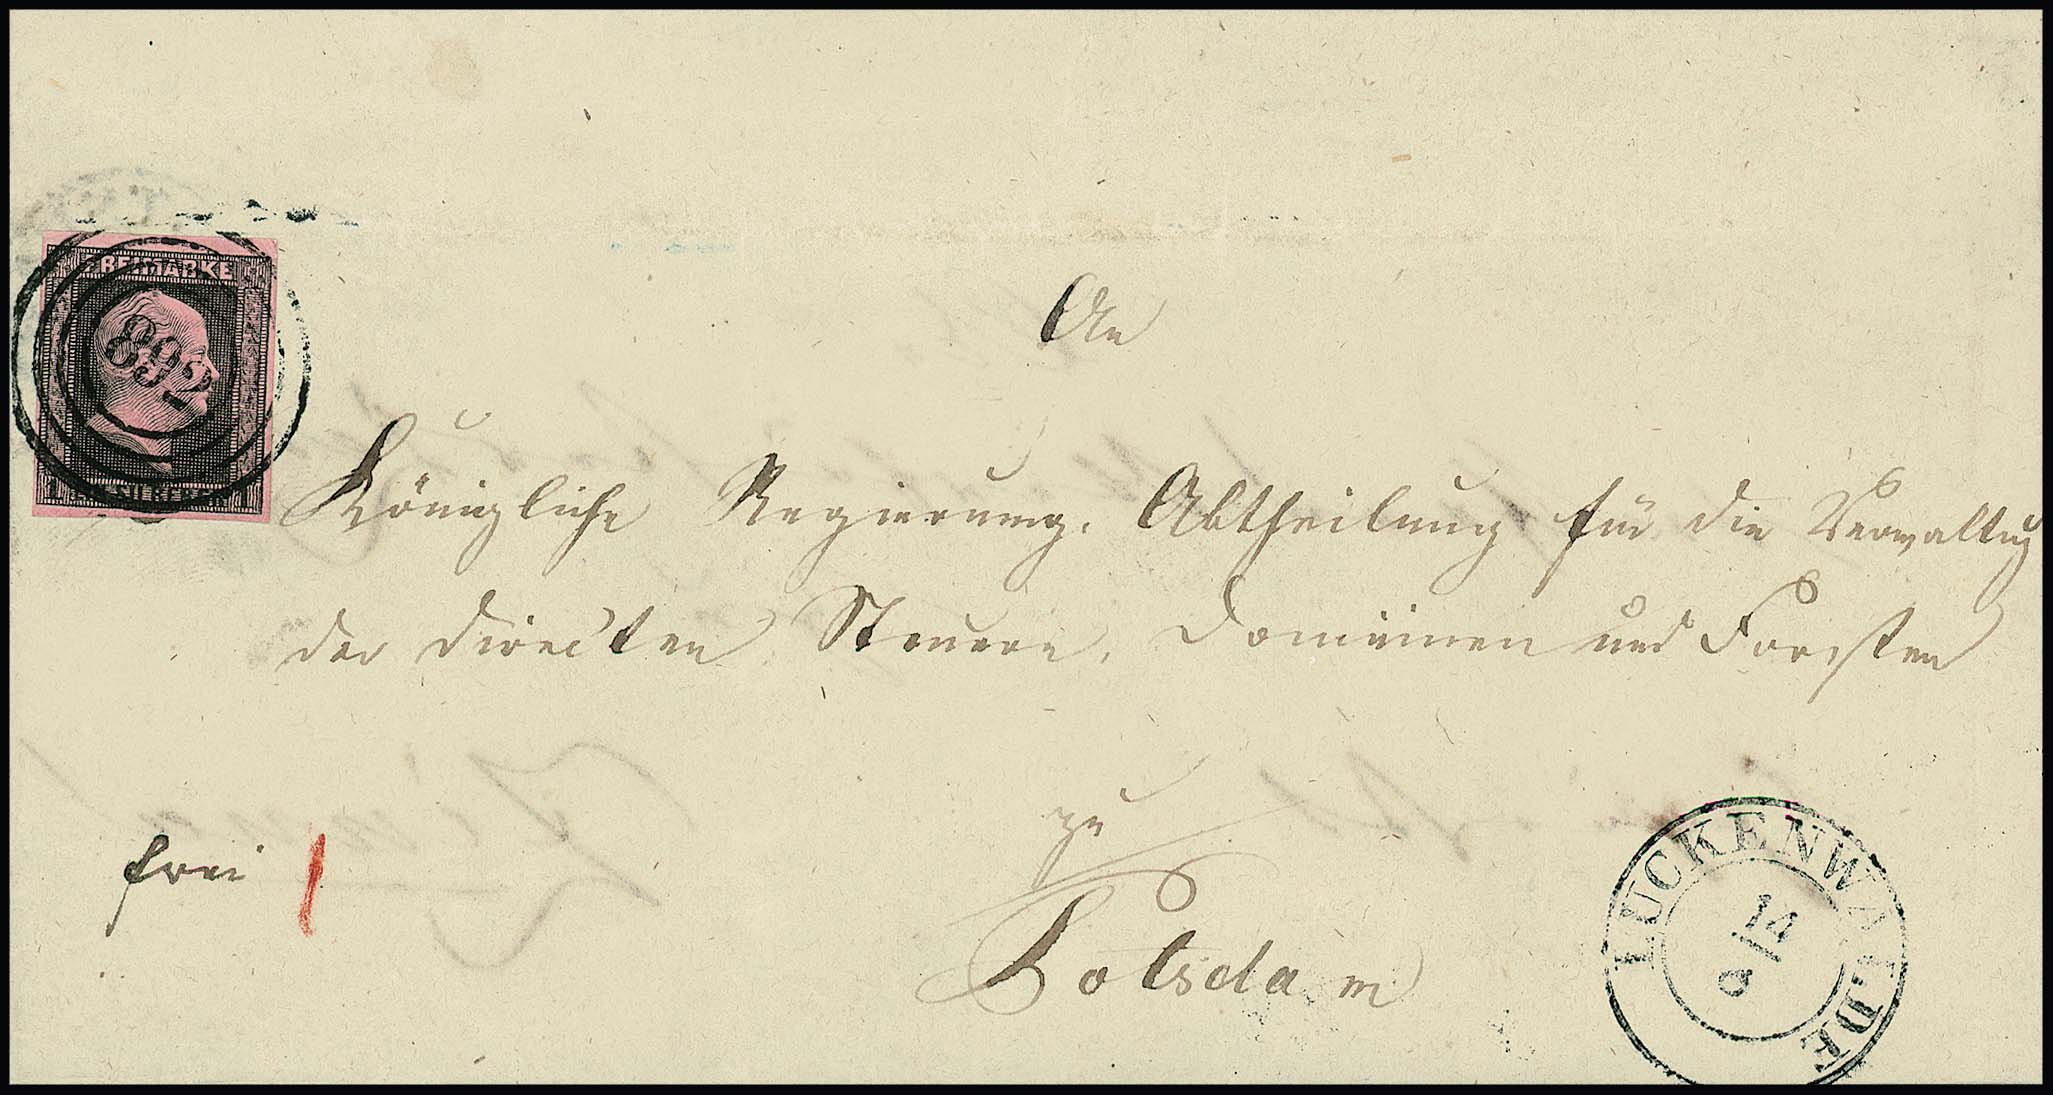 FREIMARKE
892
1 SILBERGR. 1
An
Königliche Regierung, Abtheilung für die Verwaltung
der directen Steuern, Domainen und Forsten
zu
Potsdam
frei 1
LUCKENWALDE
14
9